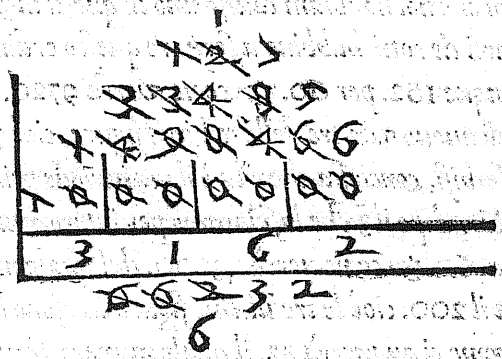 1
1 2 7
3 3 4 8 5
1 4 9 8 4 6 6
1 0 | 0 0 | 0 0 | 0 0
3 1 6 2
6 6 2 3 2
6